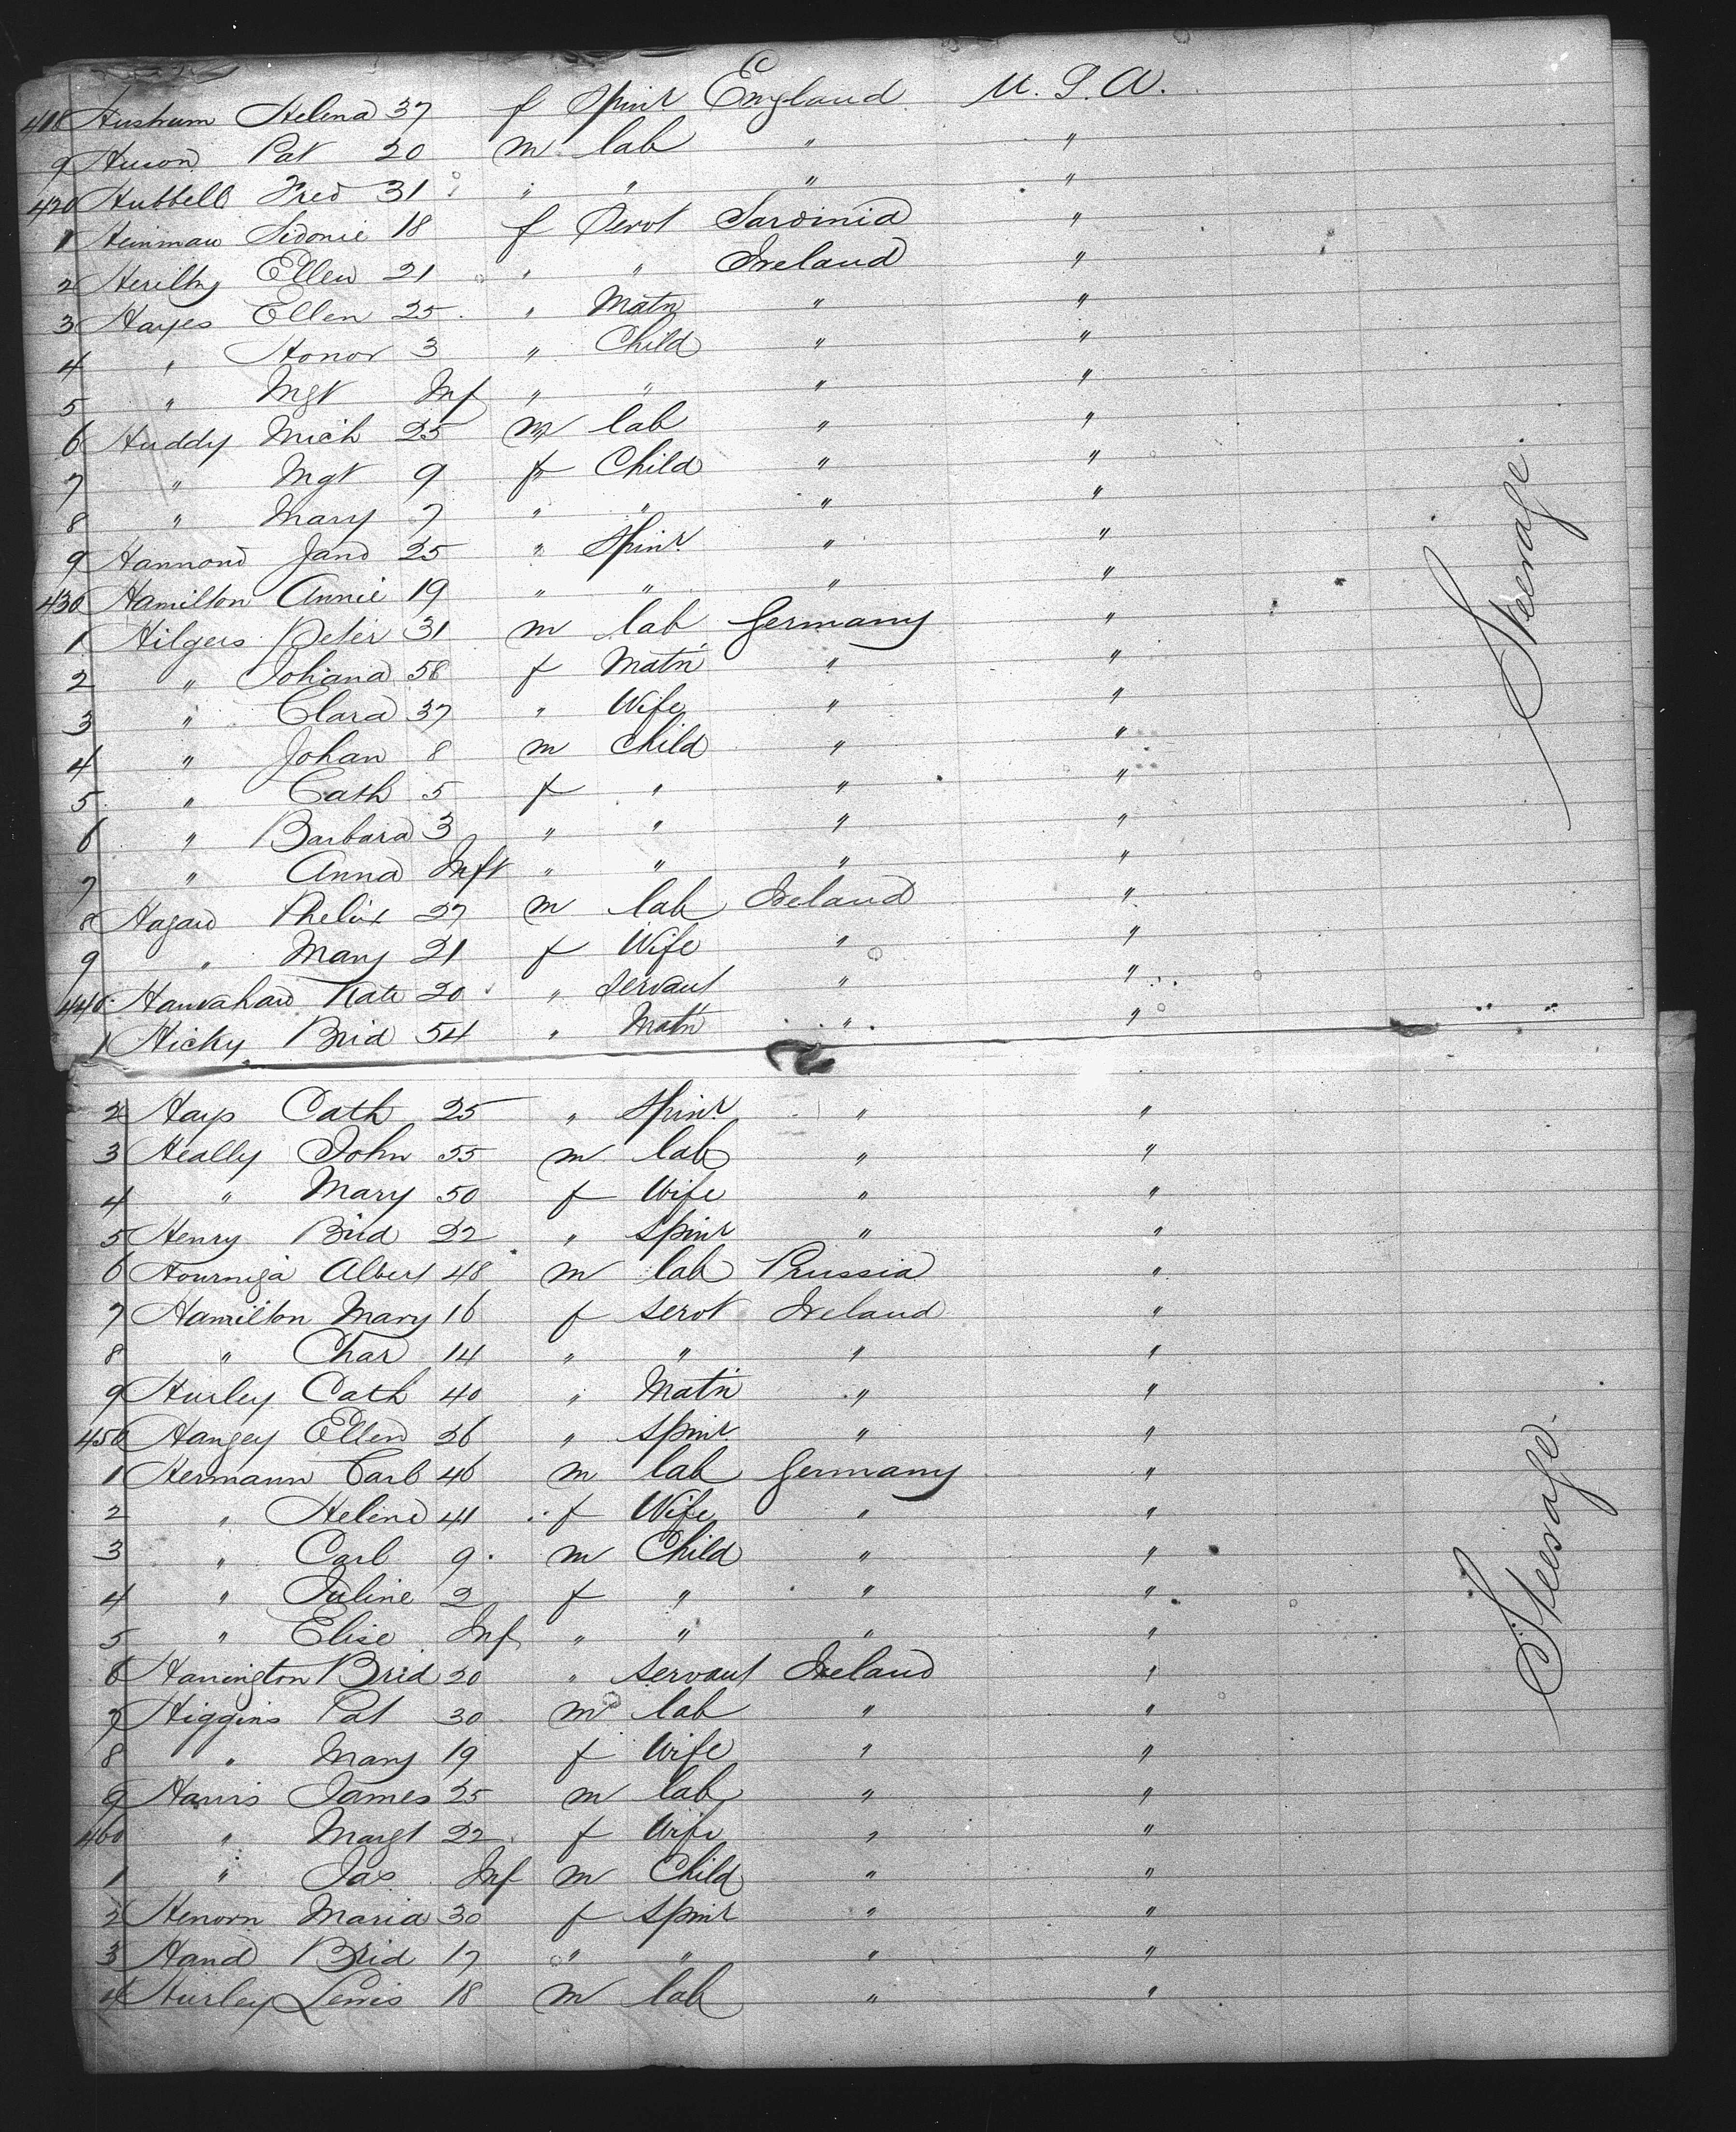 418 Hushum Helena 37 f Spinr England U.S.A.
9 Pat 20 m lab " "
420 Hubbell Fred 31 " " " "
1 Heinman Sidonie 18 f Servt Sardinia "
2 Herilhy Ellen 21 " " Ireland "
3 Hayes Ellen 25 " Matn " "
4 " Honor 3 " Child " "
5 " Mgt Inf " " " "
6 Huddy Mich 25 m lab " "
7 " Mgt 9 f Child " "
8 " Mary 7 " " " "
9 Hannond Jane 25 " Spinr " "
430 Hamilton Annie 19 " " " "
1 Hilgers Peter 31 m lab Germany "
2 " Johana 58 f Matn " "
3 " Clara 37 " Wife " "
4 " Johan 8 m Child " "
5 " Cath 5 f " " "
6 " Barbara 3 " " " "
7 " Anna Inft " " " "
8 Hagan Phelix 27 m lab Ireland "
9 " Mary 21 f Wife " "
440 Hanrahan Kate 20 " Servant " "
1 Hicky Brid 54 " Matn " "
Steerage.
2 Hays Cath 25 " Spinr " "
3 Heally John 55 m lab " "
4 " Mary 50 f Wife " "
5 Henry Brid 22 " Spinr " "
6 Albert 48 m lab Prussia "
7 Hamilton Mary 16 f Servt Ireland "
8 " Char 14 " " " "
9 Hurley Cath 40 " Matn " "
450 Hangey Ellen 26 " Spinr " "
1 Hermann Carl 46 m lab Germany "
2 " Helene 41 f Wife " "
3 " Carl 9 m Child " "
4 " Juline 2 f " " "
5 " Elise Inf " " " "
6 Harrington Brid 20 " Servant Ireland "
7 Higgins Pat 30 m lab " "
8 " Mary 19 f Wife " "
9 Harris James 25 m lab " "
460 " Margt 22 f Wife " "
1 " Jas Inf m Child " "
2 Henorn Maria 30 f Spinr " "
3 Hand Brid 17 " " " "
4 Hurley Lewis 18 m lab " "
Steerage.